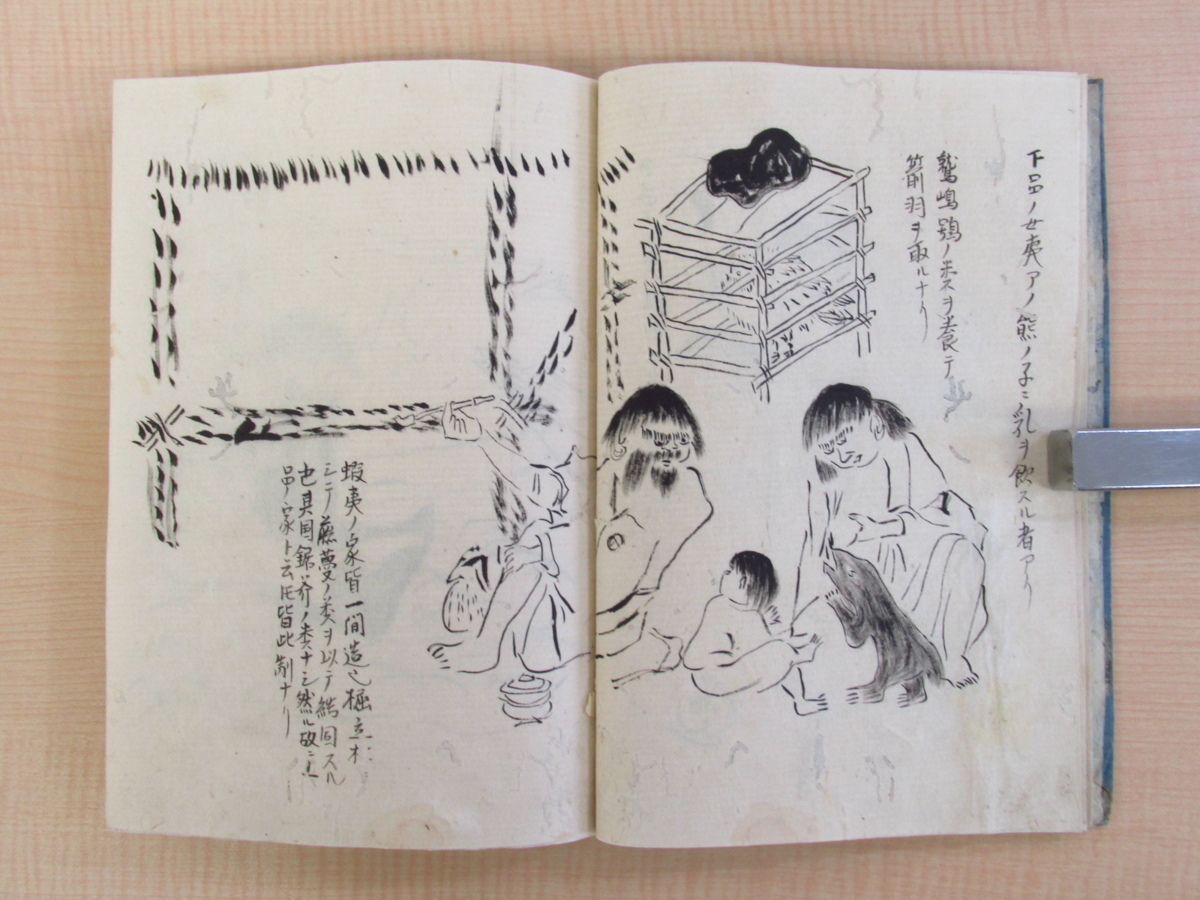 下品ノ女夷アノ熊ノ子ニ乳ヲ飲スル者アリ
鷲嶋鴞ノ類ヲ養テ
箭羽ヲ取ルナリ
蝦夷ノ家皆一間造也掘立木
ニテ藤蔓ノ類ヲ以テ結固スル
也其国鋸斧ノ類ナシ然ル故ニ上
品ノ家ト云氏皆此制ナリ